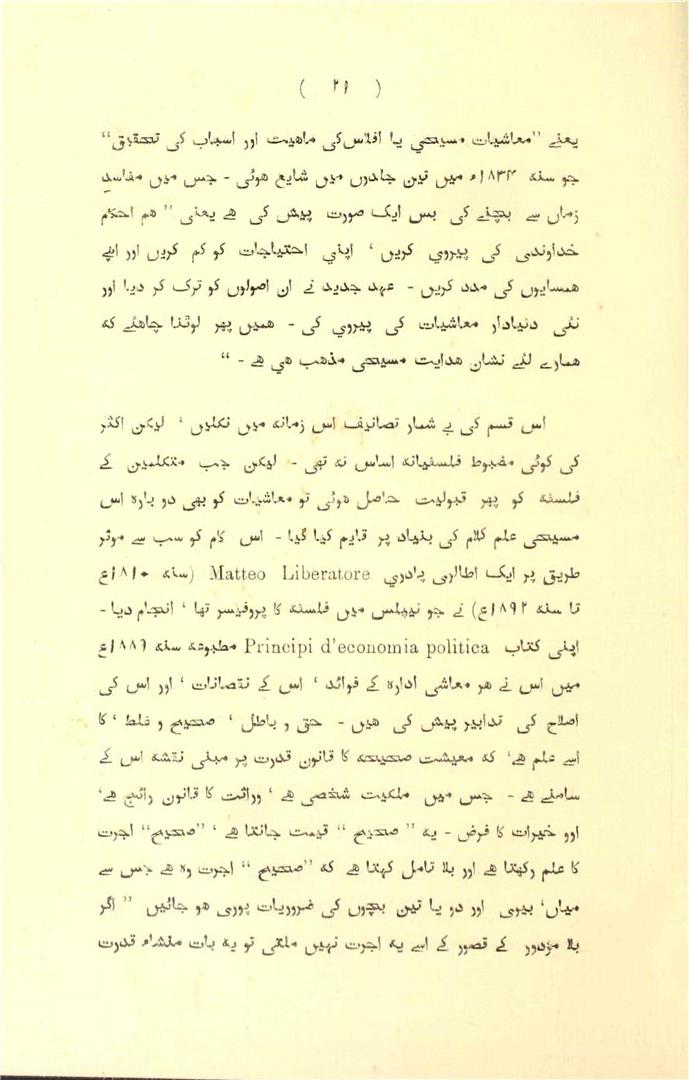 ( ۲۹ )
یعنے ”معاشیات مسیحی یا افلاس کی ماهیت اور اسباب کی تحقیق“
جو سنه ۱۸۳۴ء میں تین جلدوں میں شایع هوئی - جس میں مفاسد
زماں سے بچنے کی بس ایک صورت پیش کی هے یعنی ” هم احکام
خداوندی کی پیروی کریں ‘ اپنی احتیاجات کو کم کریں اور اپنے
همسایوں کی مدد کریں - عهد جدید نے ان اصولوں کو ترک کر دیا اور
نئی دنیادار معاشیات کی پیروی کی - همیں پهر لوٹنا چاهئے که
همارے لئے نشان هدایت مسیحی مذهب هی هے - “
اس قسم کی بے شمار تصانیف اس زمانه میں نکلیں ‘ لیکن اکثر
کی کوئی مضبوط فلسفیانه اساس نه تهی - لیکن جب متکلمین کے
فلسفه کو پهر قبولیت حاصل هوئی تو معاشیات کو بهی دو باره اس
مسیحی علم کلام کی بنیاد پر قایم کیا گیا - اس کام کو سب سے موثر
طریق پر ایک اطالوی پادری Matteo Liberatore (سنه ۱۸۱۰ع
تا سنه ۱۸۹۲ع) نے جو نیپلس میں فلسفه کا پروفیسر تها ‘ انجام دیا -
اپنی کتاب Principi d'economia politica مطبوعه سنه ۱۸۸۹ع
میں اس نے هر معاشی اداره کے فوائد ‘ اس کے نقصانات ‘ اور اس کی
اصلاح کی تدابیر پیش کی هیں - حق و باطل ‘ صحیح و غلط ‘ کا
اسے علم هے‘ که معیشت صحیحه کا قانون قدرت پر مبنی نقشه اس کے
سامنے هے - جس میں ملکیت شخصی هے ‘ وراثت کا قانون رائج هے‘
اوو خیرات کا فرض - یه ” صحیح “ قیمت جانتا هے ‘ ”صحیح“ اجرت
کا علم رکهتا هے اور بلا تامل کہتا هے که ”صحیح “ اجرت وه هے جس سے
میاں‘ بیوی اور دو یا تین بچوں کی ضروریات پوری هو جائیں ” اگر
بلا مزدور کے قصور کے اسے یه اجرت نہیں ملتی تو یه بات منشاء قدرت